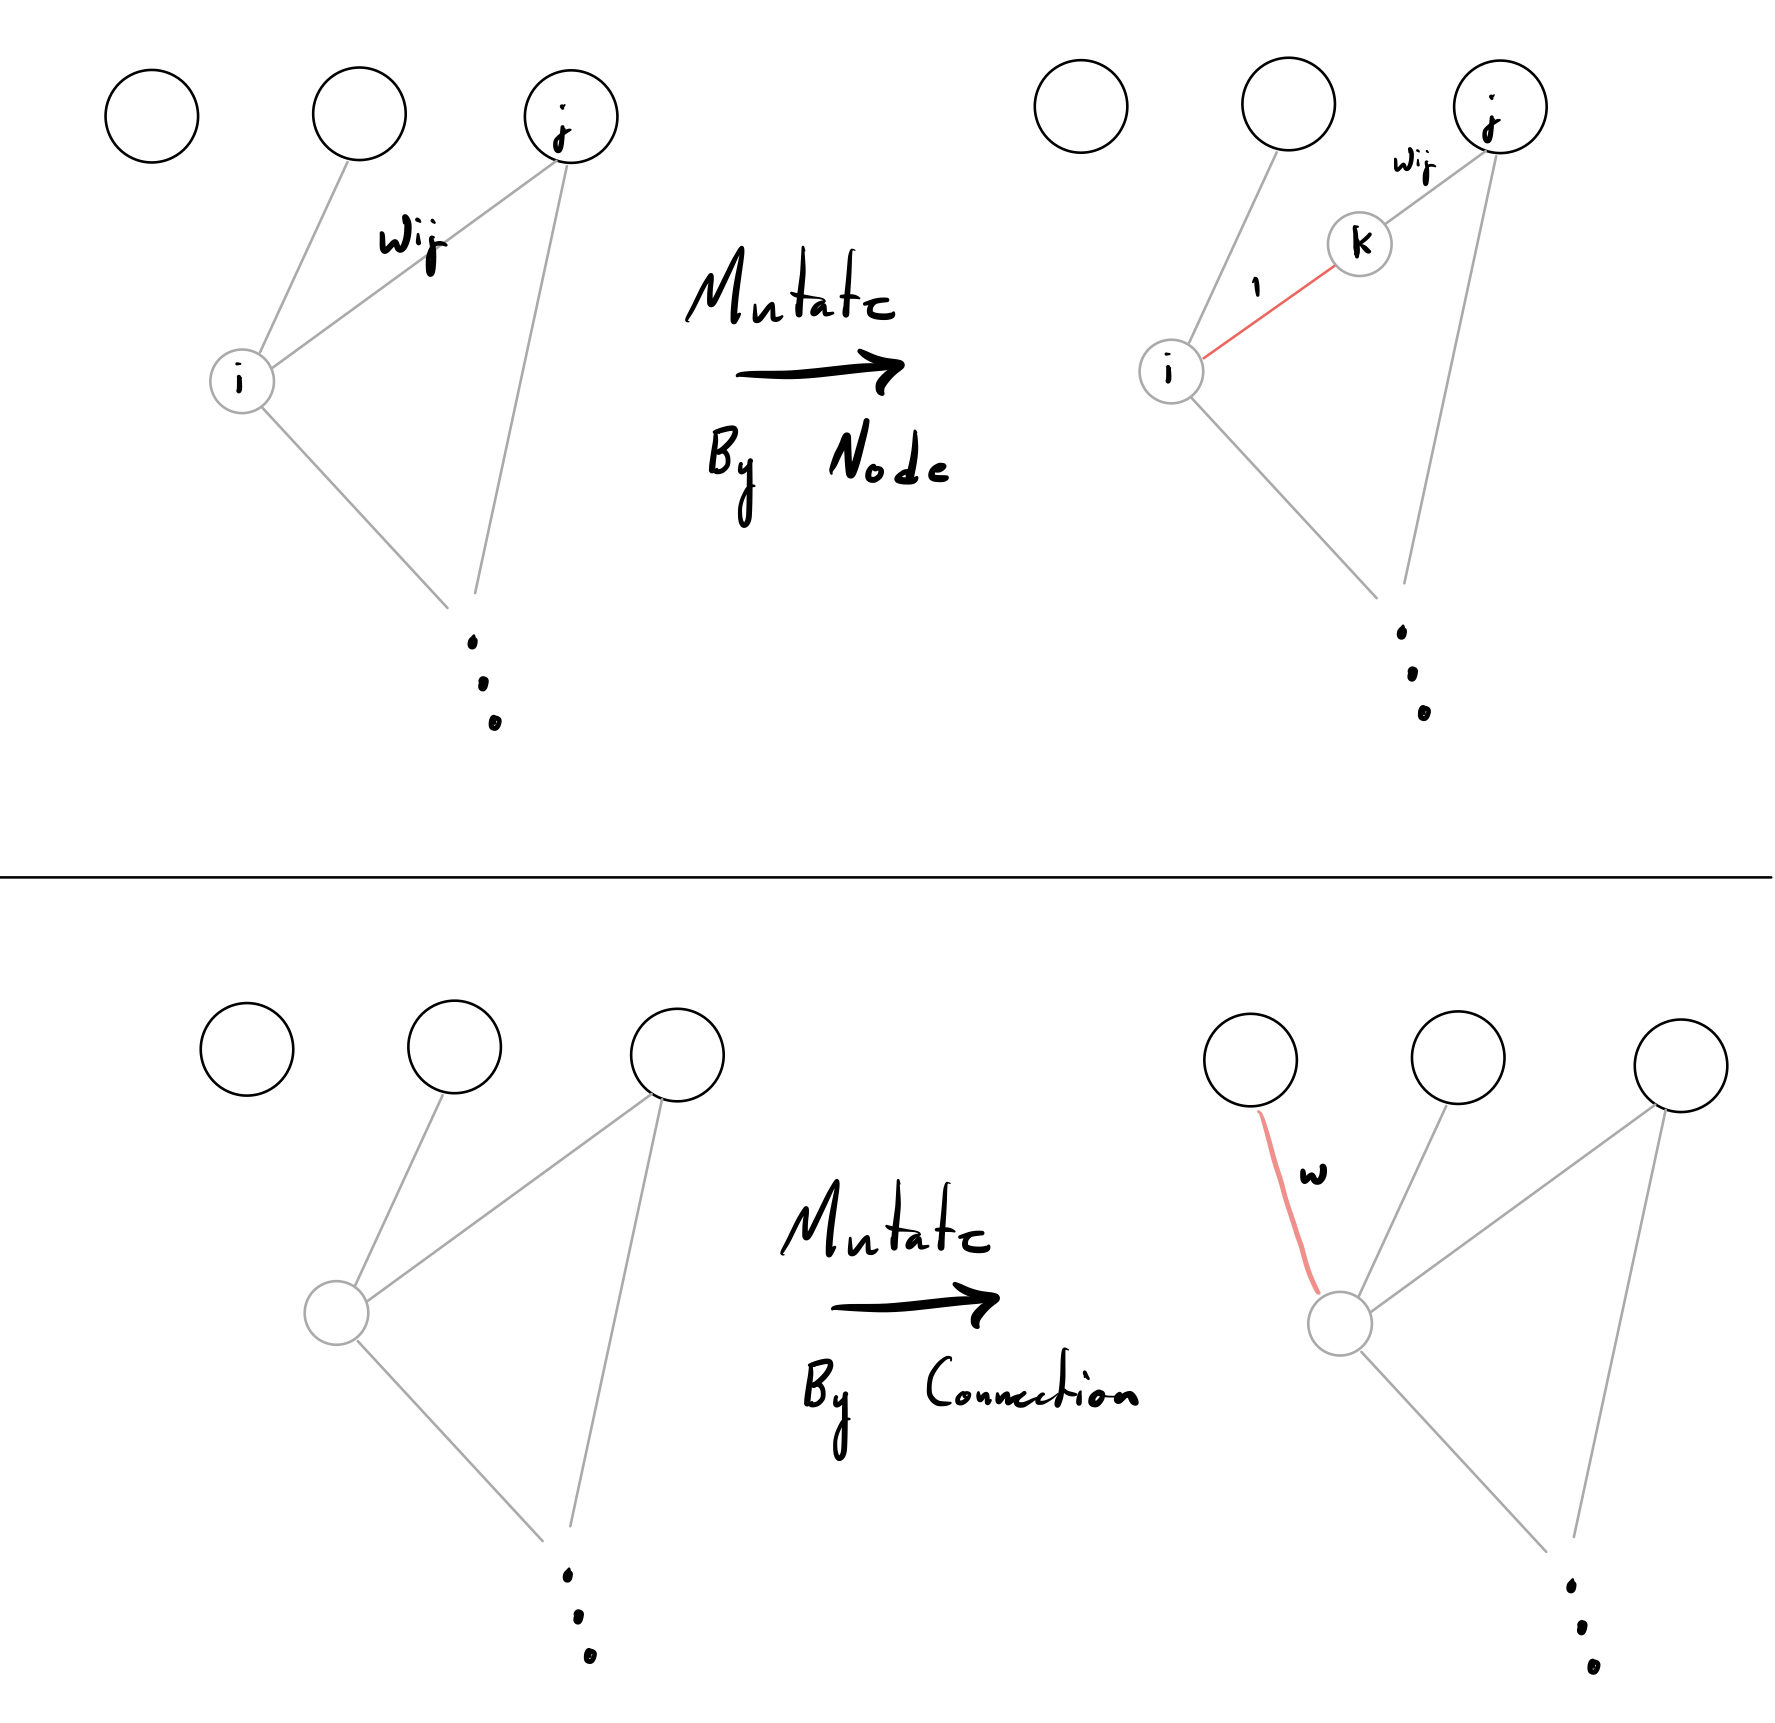 j
wij
i
Mutate
By Node
j
wij
k
1
i
Mutate
By Connection
w